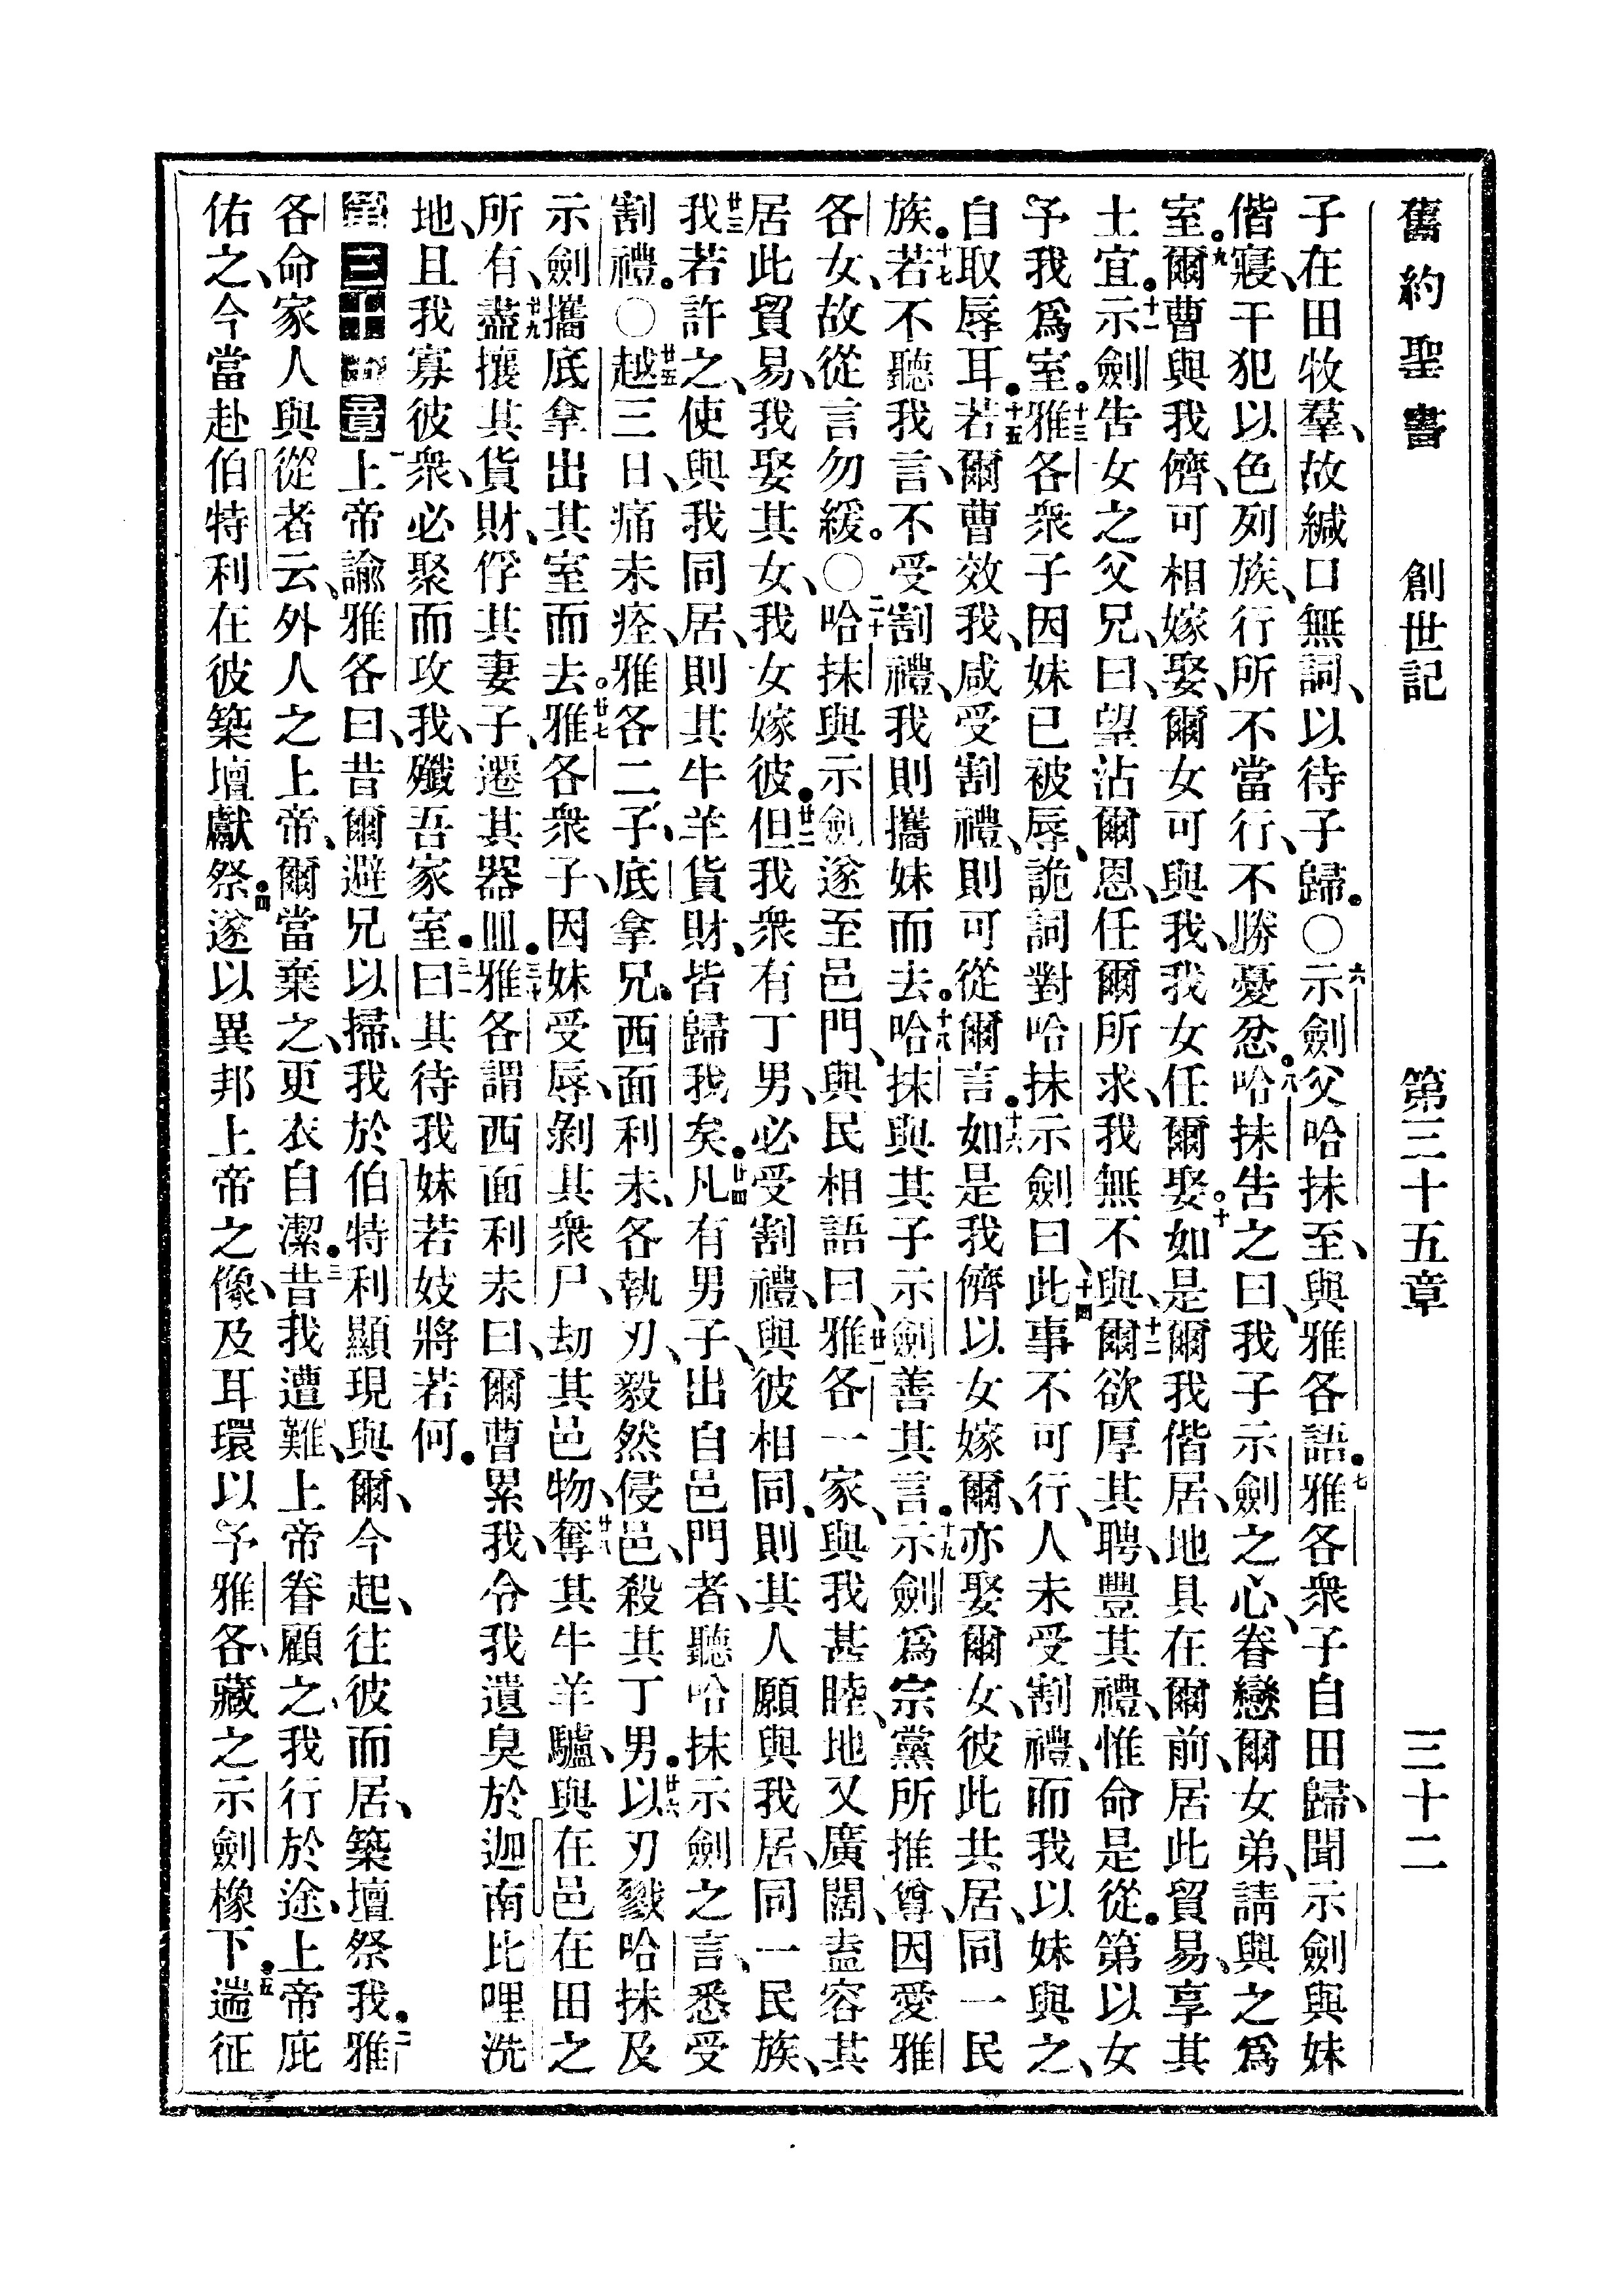 舊約聖書 創世記 第三十五章 三十二
子在田牧羣、故緘口無詞、以待子歸。○六示劍父哈抹至、與雅各語。七雅各衆子自田歸、聞示劍與妹
偕寢、干犯以色列族、行所不當行、不勝憂忿。八哈抹吿之曰、我子示劍之心、眷戀爾女弟、請與之爲
室。九爾曹與我儕、可相嫁娶、爾女可與我、我女任爾娶。十如是爾我偕居、地具在爾前、居此貿易、享其
土宜。十一示劍吿女之父兄曰、望沾爾恩、任爾所求、我無不與、十二爾欲厚其聘、豐其禮、惟命是從。第以女
予我爲室。十三雅各衆子因妹已被辱、詭詞對哈抹示劍曰、十四此事不可行、人未受割禮、而我以妹與之、
自取辱耳。十五若爾曹效我、咸受割禮、則可從爾言。十六如是我儕以女嫁爾、亦娶爾女、彼此共居、同一民
族。十七若不聽我言、不受割禮、我則攜妹而去。十八哈抹與其子示劍善其言。十九示劍爲宗黨所推尊、因愛雅
各女、故從言勿緩。○二十哈抹與示劍遂至邑門、與民相語曰、廿一雅各一家、與我甚睦、地又廣闊、盍容其
居此貿易、我娶其女、我女嫁彼。廿二但我衆有丁男、必受割禮、與彼相同、則其人願與我居、同一民族、
廿三我若許之、使與我同居、則其牛羊貨財、皆歸我矣。廿四凡有男子、出自邑門者、聽哈抹示劍之言、悉受
割禮。○廿五越三日、痛未痊、雅各二子、底拿兄、西面利未、各執刃、毅然侵邑、殺其丁男。廿六以刃戮哈抹及
示劍攜底拿出其室而去。廿七雅各衆子、因妹受辱、剝其衆尸、劫其邑物、廿八奪其牛羊驢、與在邑在田之
所有、廿九盡攘其貨財、俘其妻子、遷其器皿。三十雅各謂西面利未曰、爾曹累我、令我遺臭於迦南比哩洗
地、且我寡彼衆、必聚而攻我、殲吾家室。三一曰其待我妹若妓將若何。
第三十五章 一上帝諭雅各曰、昔爾避兄以掃、我於伯特利顯現與爾、今起、往彼而居、築壇祭我。二雅
各命家人與從者云、外人之上帝、爾當棄之、更衣自潔。三昔我遭難、上帝眷顧之、我行於途、上帝庇
佑之、今當赴伯特利、在彼築壇獻祭。四遂以異邦上帝之像、及耳環以予雅各、藏之示劍橡下。五遄征